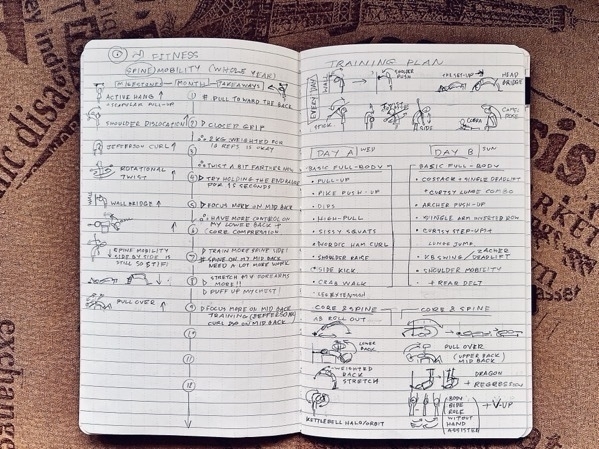 FITNESS
SPINE MOBILITY (WHOLE YEAR)
MILESTONES MONTH TAKEAWAYS
ACTIVE HANG ↑
+ SCAPULAR PULL-UP
1 # PULL TOWARD THE BACK
SHOULDER DISLOCATION ↑
2 ▷ CLOSET GRIP
JEFFERSON CURL ↑
3 2 KG WEIGHTED FOR
10 REPS IS OKAY
ROTATIONAL
TWIST ↑
TWIST A BIT FARTHER NOW
4 ▷ TRY HOLDING THE END RANGE
FOR 15 SECONDS
WALL BRIDGE ↑
5 ▷ FOCUS MORE ON MID BACK
HAVE MORE CONTROL ON
MY LOWER BACK +
CORE COMPRESSION
6
SPINE MOBILITY
SIDE BY SIDE IS
STILL SO STIFF
▷ TRAIN MORE SPINE SIDE!
7 # SPINE ON MY MID BACK
NEED A LOT MORE WORK
8 STRETCH MY FOREARMS
MORE!!
▷ PUFF UP MY CHEST!
PULL OVER ↑
9 ▷ FOCUS MORE ON MID BACK
TRAINING (JEFFERSON
CURL ON MID BACK
10
11
12
TRAINING PLAN
EVERYDAY
SHOULDER
PUSH
HEAD
BRIDGE
STICK
SIDE
COBRA
CAMEL
POSE
DAY A WED
BASIC FULL-BODY
• PULL-UP
• PIKE PUSH-UP
• DIPS
• HIGH-PULL
• SISSY SQUATS
• NORDIC HAM CURL
• SHOULDER RAISE
• SIDE KICK
• CRAB WALK
• LEG EXTENSION
CORE & SPINE
AB ROLL OUT
LOWER
BACK
WEIGHTED
BACK
STRETCH
KETTLEBELL HALO/ORBIT
DAY B SUN
BASIC FULL-BODY
• COSSACK + SINGLE DEADLIFT
• CURTSY LUNGE COMBO
• ARCHER PUSH-UP
• SINGLE ARM INVERTED ROW
• CURTSY STEP-UP +
LUNGE JUMP
• KB SWING / DEADLIFT
• SHOULDER MOBILITY
+ REAR DELT
CORE & SPINE
PULL OVER
(UPPER BACK/
MID BACK)
DRAGON
+ REGRESSION
BODY
SIDE
ROLE
WITHOUT
HAND
ASSISTED
+ V-UP